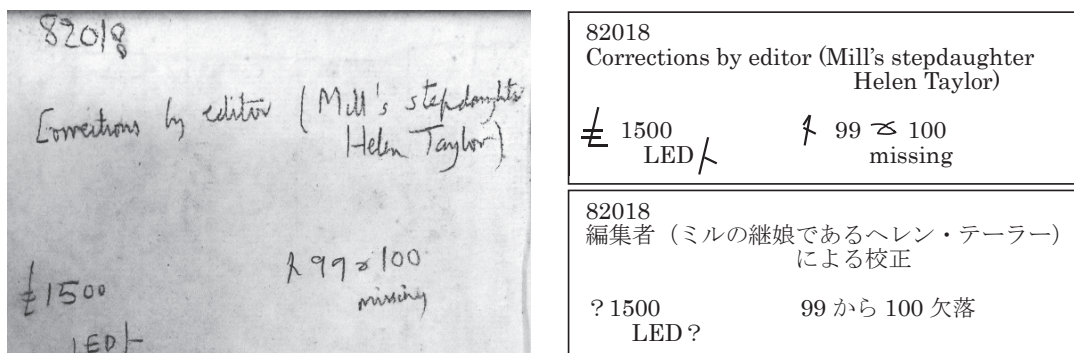 82018
Corrections by editor (Mill's stepdaughter
Helen Taylor)
£1500
99 100
missing
LED
82018
Corrections by editor (Mill's stepdaughter
Helen Taylor)
1500
99 100
LED
missing
82018
編集者（ミルの継娘であるヘレン・テーラー）
による校正
？1500
99 から 100 欠落
LED？